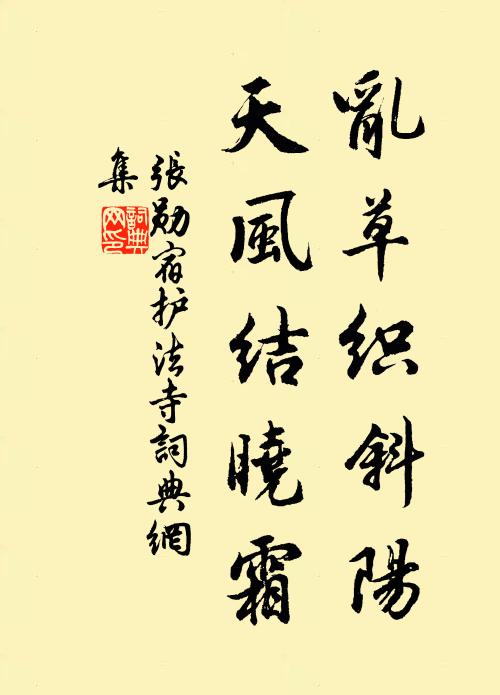 亂草织斜陽
天風結曉霜
張勋宿护法寺詞典網
集
詞典
网印